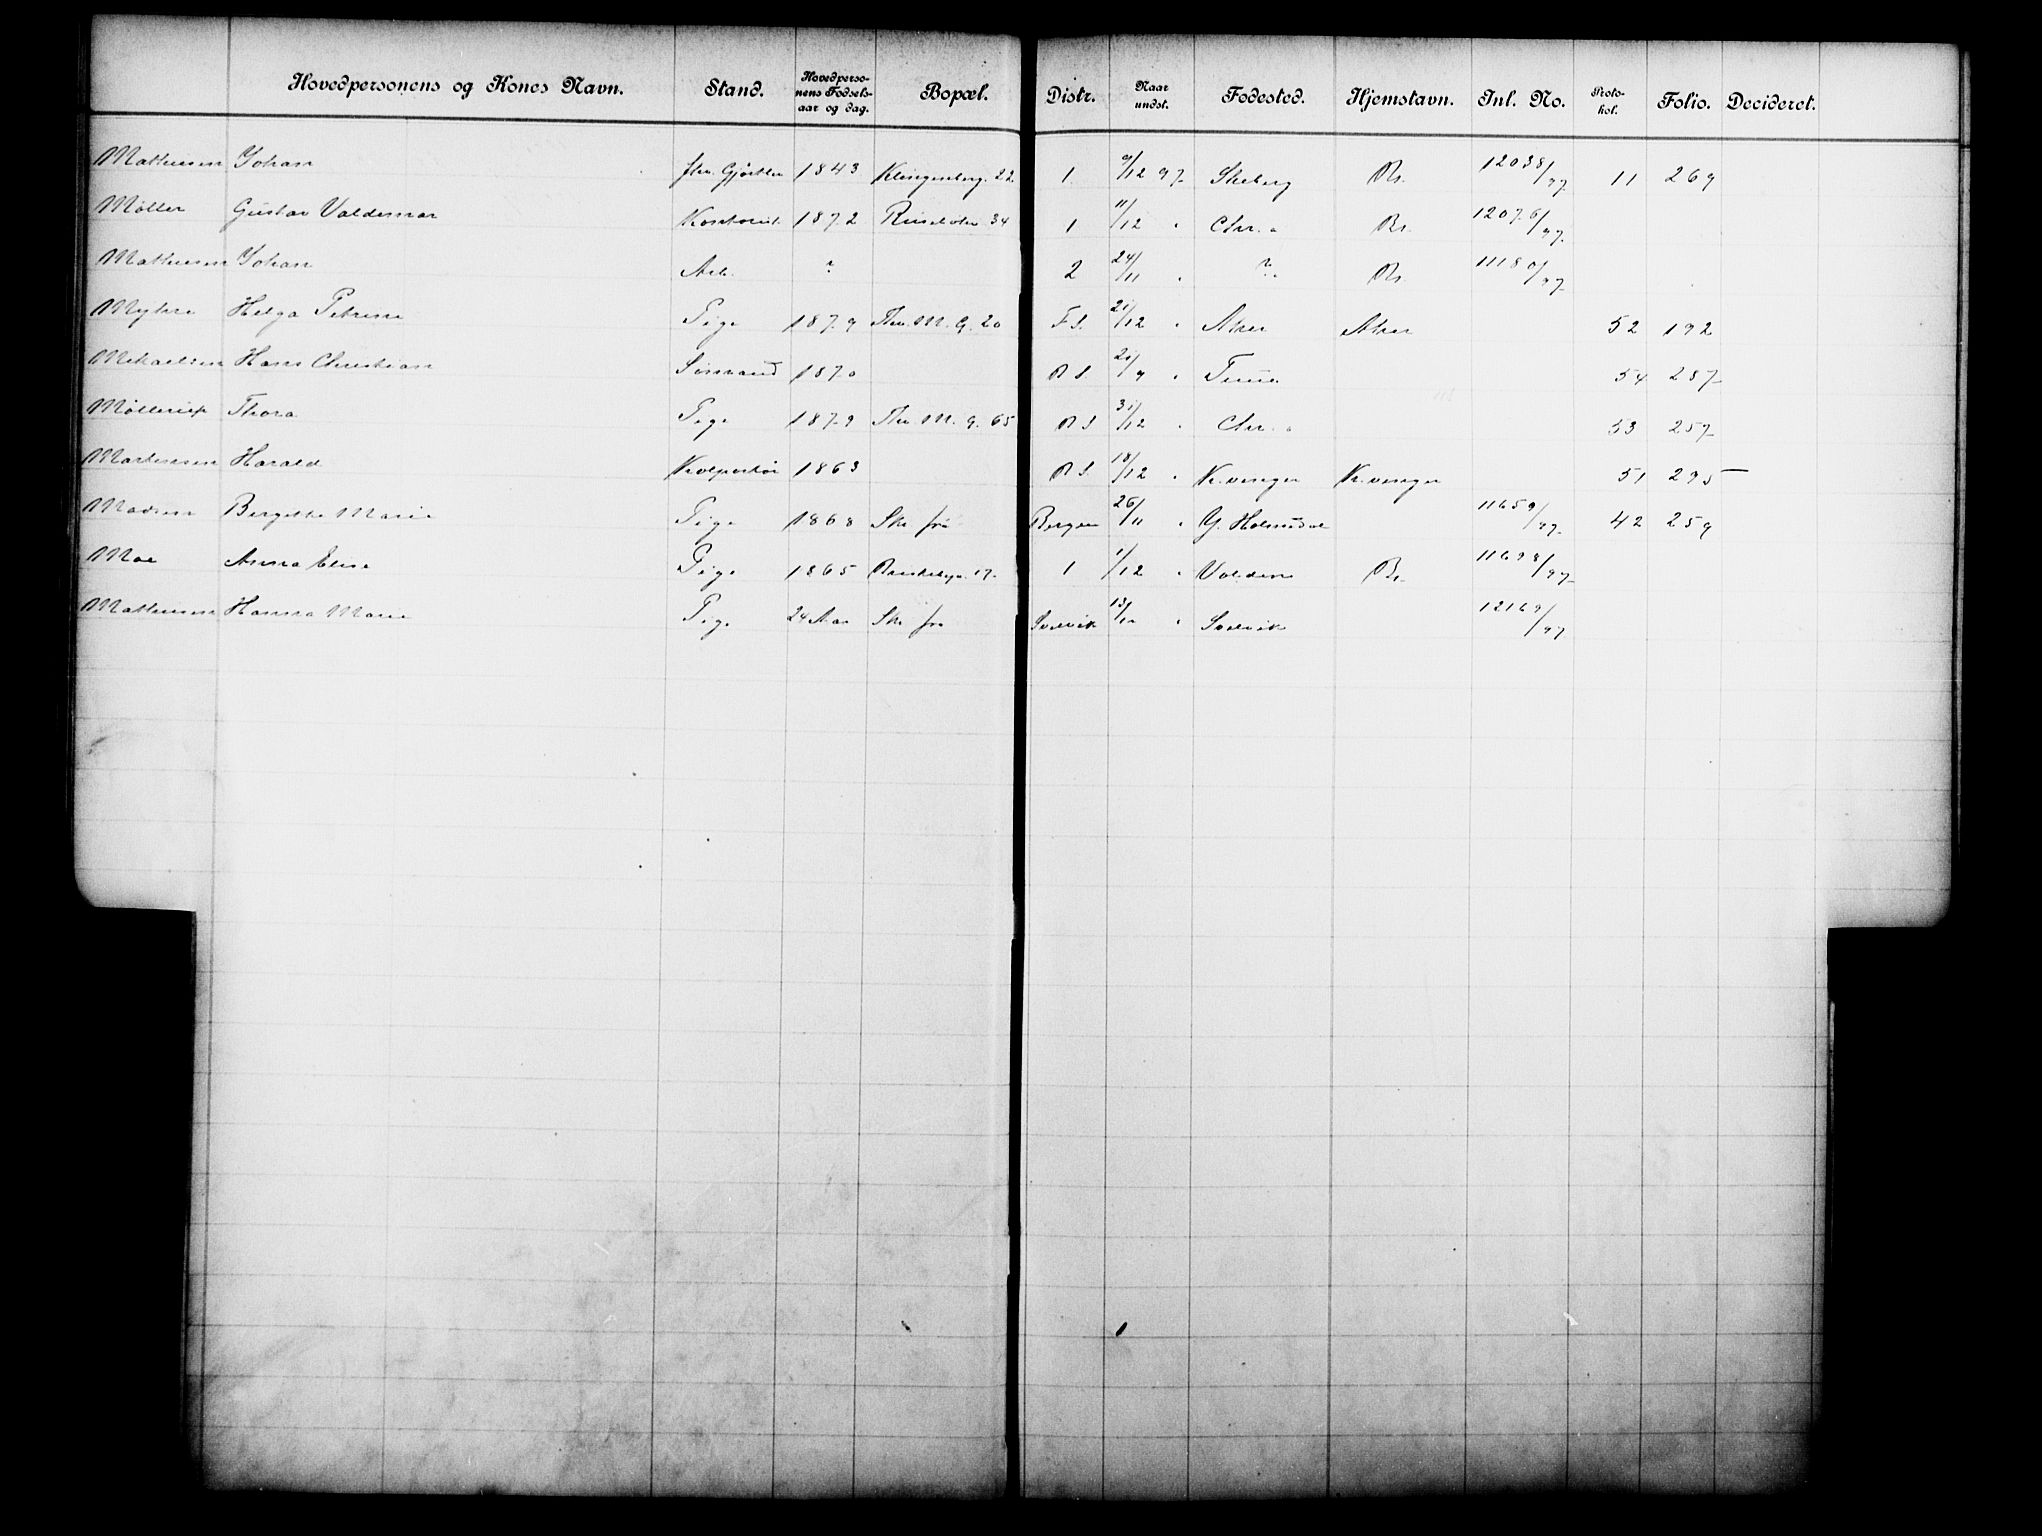 Hovedpersonens og Kones Navn. Stand. Hovedpersonens Fødselsaar og dag. Bopæl. Distr. Naar undst. Fødested. Hjemstavn. Inl. No. Protokol. Folio. Decideret.
Mathiesen Johan 1843 Klingenberg. 22 1. 9/12 97 Skeberg Kr. 12038/97 11 269
Møller Gustav Valdemar Kontorist 1872 34 1 11/12 " Chr.a Kr. 12076/97
Mathiesen Johan Arb. ? 2 24/11 " ? Kr. 11180/97
Myhre Helga Petrine Pige 1879 Thv. M. G. 20 F S. 21/12 " Aker Aker 52 192
Mikaelsen Hans Christian Sømand 1870 R S. 21/9 " Tune 54 287
Møllerup Thora Pige 1879 Thv. M. G. 65 R S 31/12 " Chr.a 53 257
Martinsen Harald Kolportør 1863 R S. 18/12 " K.vinger K.vinger 51 295
Madsen Bergitte Marie Pige 1868 Skr. fra Bergen 26/11 " 11659/97 42 259
Moe Anna Elise Pige 1865 17 1 1/12 " Volden Kr. 11698/97
Mathiesen Hanna Marie Pige 24 Aar Skr. fra Svelvik 13/12 " Svelvik 12169/97